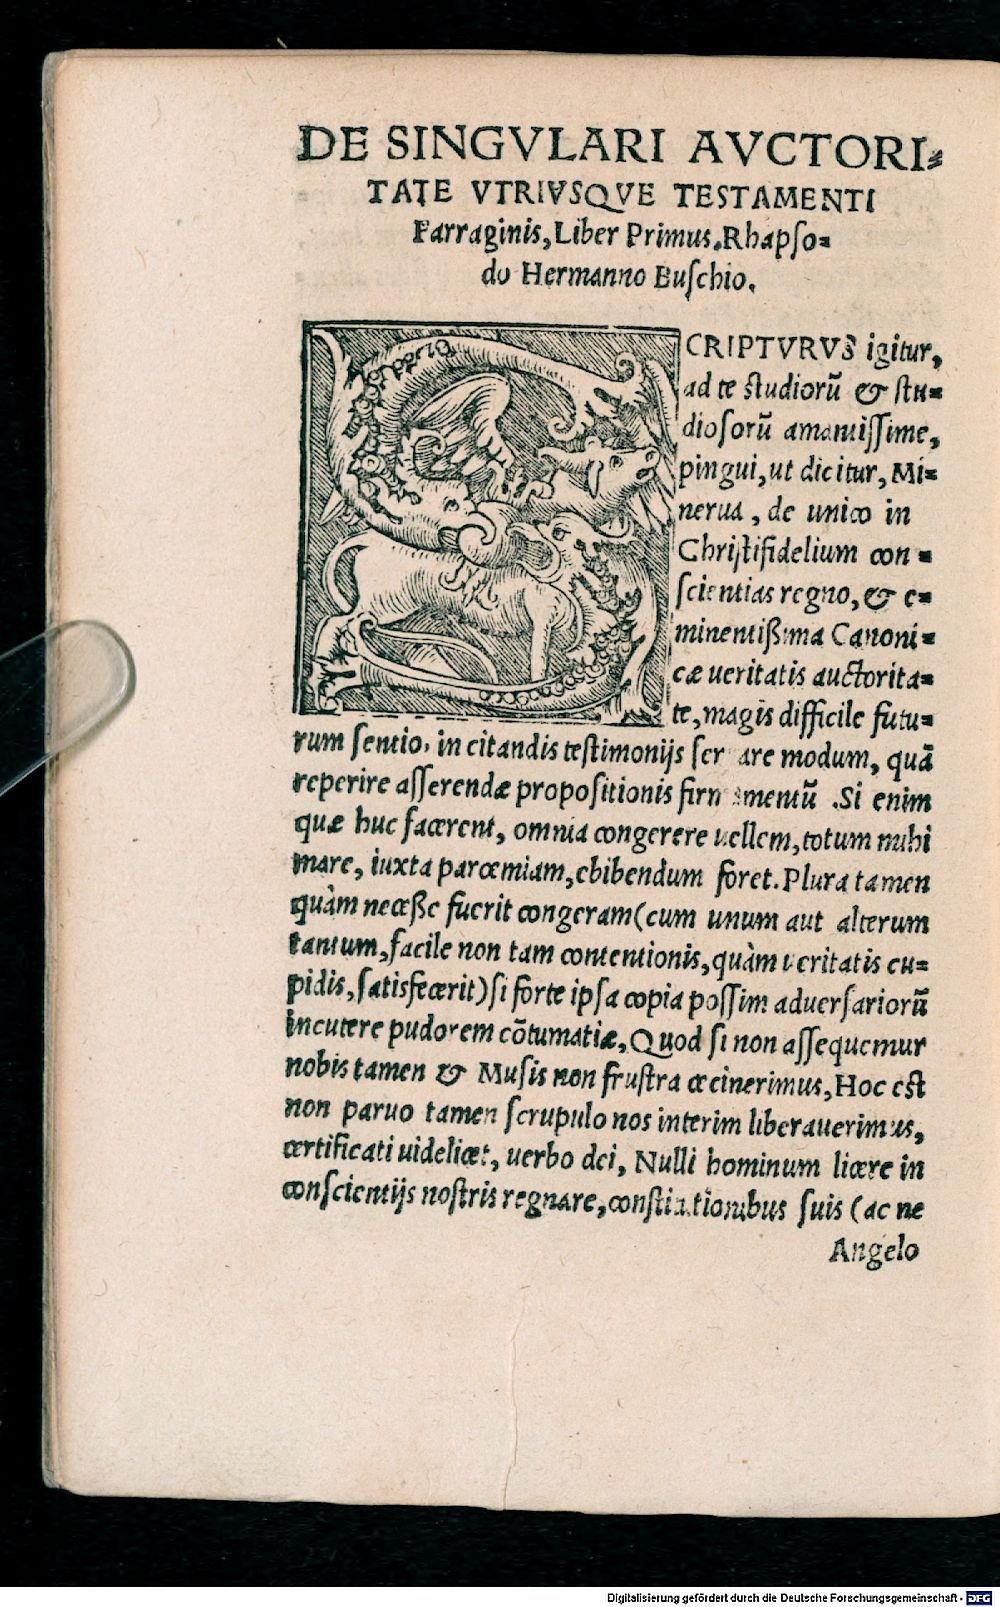 DE SINGVLARI AVCTORI⸗
TATE VTRIVSQVE TESTAMENTI
Farraginis, Liber Primus. Rhapſo⸗
do Hermanno Buſchio.
SCRIPTVRVS igitur,
ad te ſtudiorū & ſtu⸗
dioſorū amantiſſime,
pingui, ut dicitur, Mi⸗
nerua, de unico in
Chriſtifidelium con⸗
ſcientias regno, & e⸗
minentißima Canoni⸗
cæ ueritatis auctorita⸗
te, magis difficile futu⸗
rum ſentio, in citandis teſtimonijs ſer are modum, quā
reperire aſſerendæ propoſitionis firmamentū .Si enim
quæ huc facerent, omnia congerere uellem, totum mihi
mare, iuxta parœmiam, ebibendum foret. Plura tamen
quàm neceße fuerit congeram (cum unum aut alterum
tantum, facile non tam contentionis, quàm ueritatis cu⸗
pidis, ſatisfecerit) ſi forte ipſa copia poſſim aduerſariorū
incutere pudorem cōtumatiæ, Quod ſi non aſſequemur
nobis tamen & Muſis non fruſtra cecinerimus, Hoc eſt
non paruo tamen ſcrupulo nos interim liberauerimus,
certificati uidelicet, uerbo dei, Nulli hominum licere in
conſcientijs noſtris regnare, conſtitutionibus ſuis (ac ne
Angelo
Digitalisierung gefördert durch die Deutsche Forschungsgemeinschaft - DFG